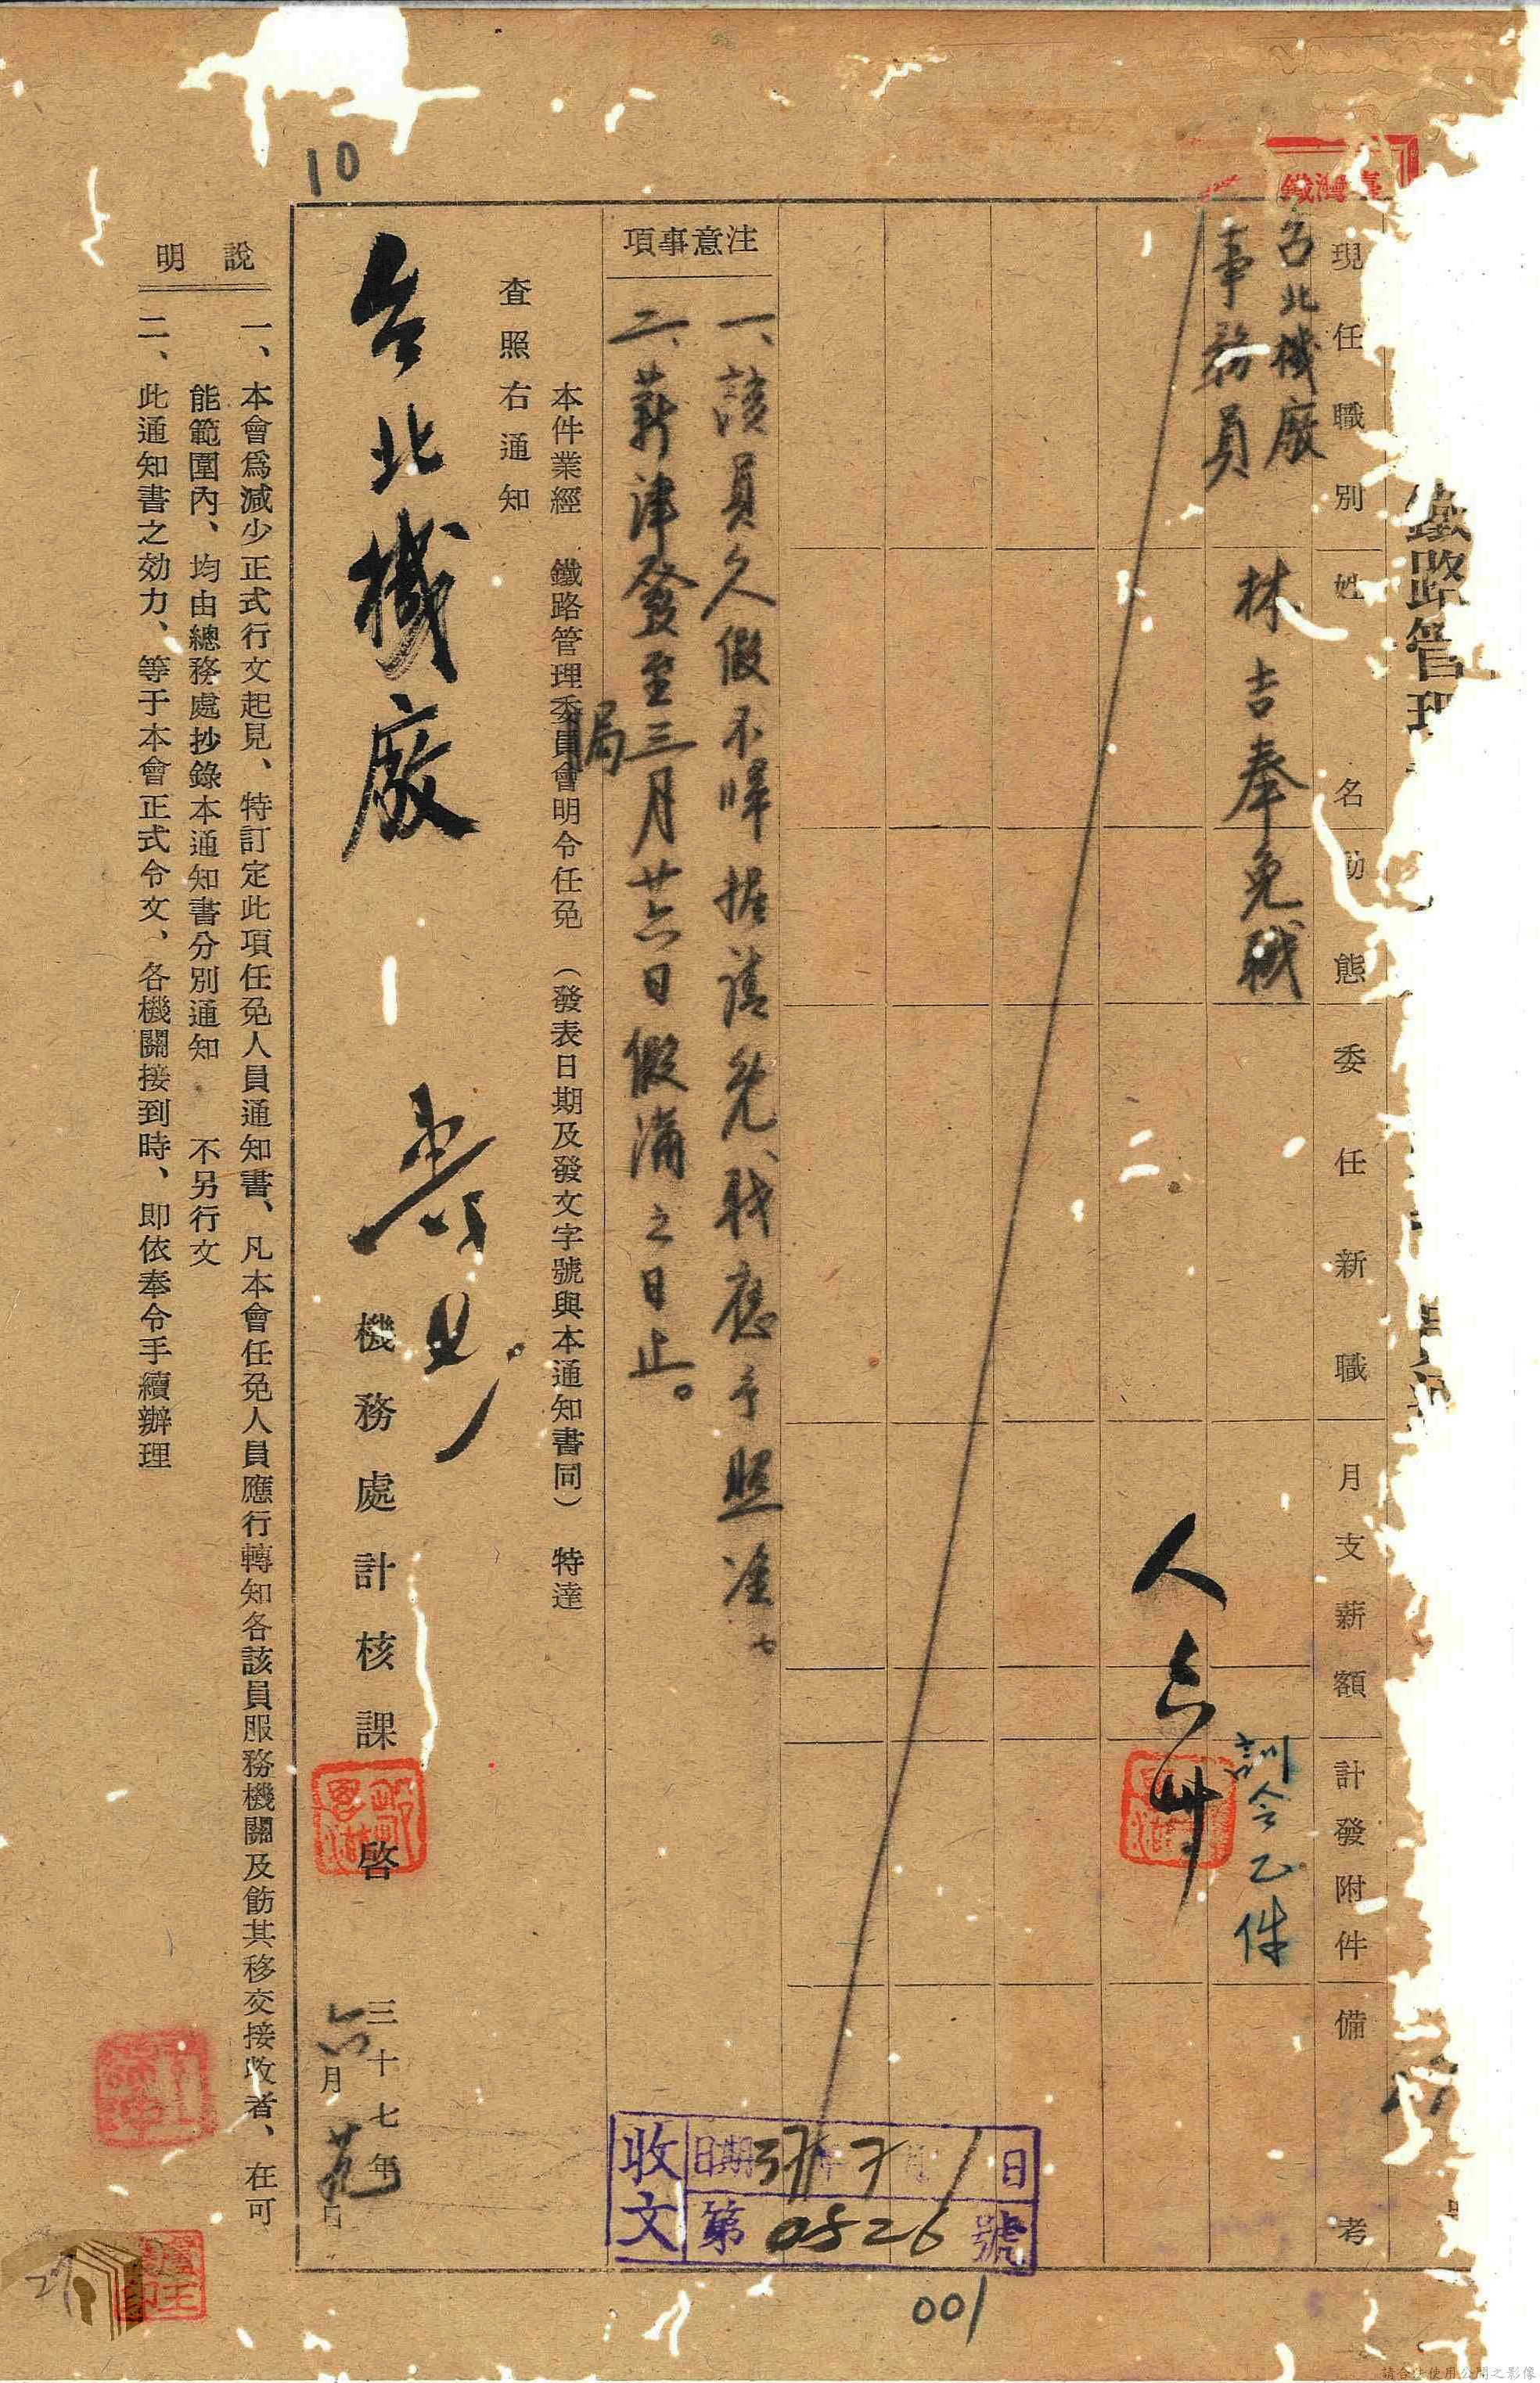 10
臺灣鐵
鐵路管理
現任職別
姓名
動態
委任新職
月支薪額
計發附件
備考
台北機廠
事務員
林吉奉免職
訓令乙件
注意事項
一、該員久假不歸據請免職應予照准。
二、薪津發至三月廿六日假滿之日止。
本件業經 鐵路管理委員會明令任免 (發表日期及發文字號與本通知書同) 特達
局
查照右通知
台北機廠
機務處計核課 啓
三十七年
六月
日
說明
一、本會爲減少正式行文起見、特訂定此項任免人員通知書、凡本會任免人員應行轉知各該員服務機關及飭其移交接收者、在可
能範圍內、均由總務處抄錄本通知書分別通知 不另行文
二、此通知書之効力、等于本會正式令文、各機關接到時、即依奉令手續辦理
收文
日期 37年7月1日
第0526號
001
請合法使用公開之影像